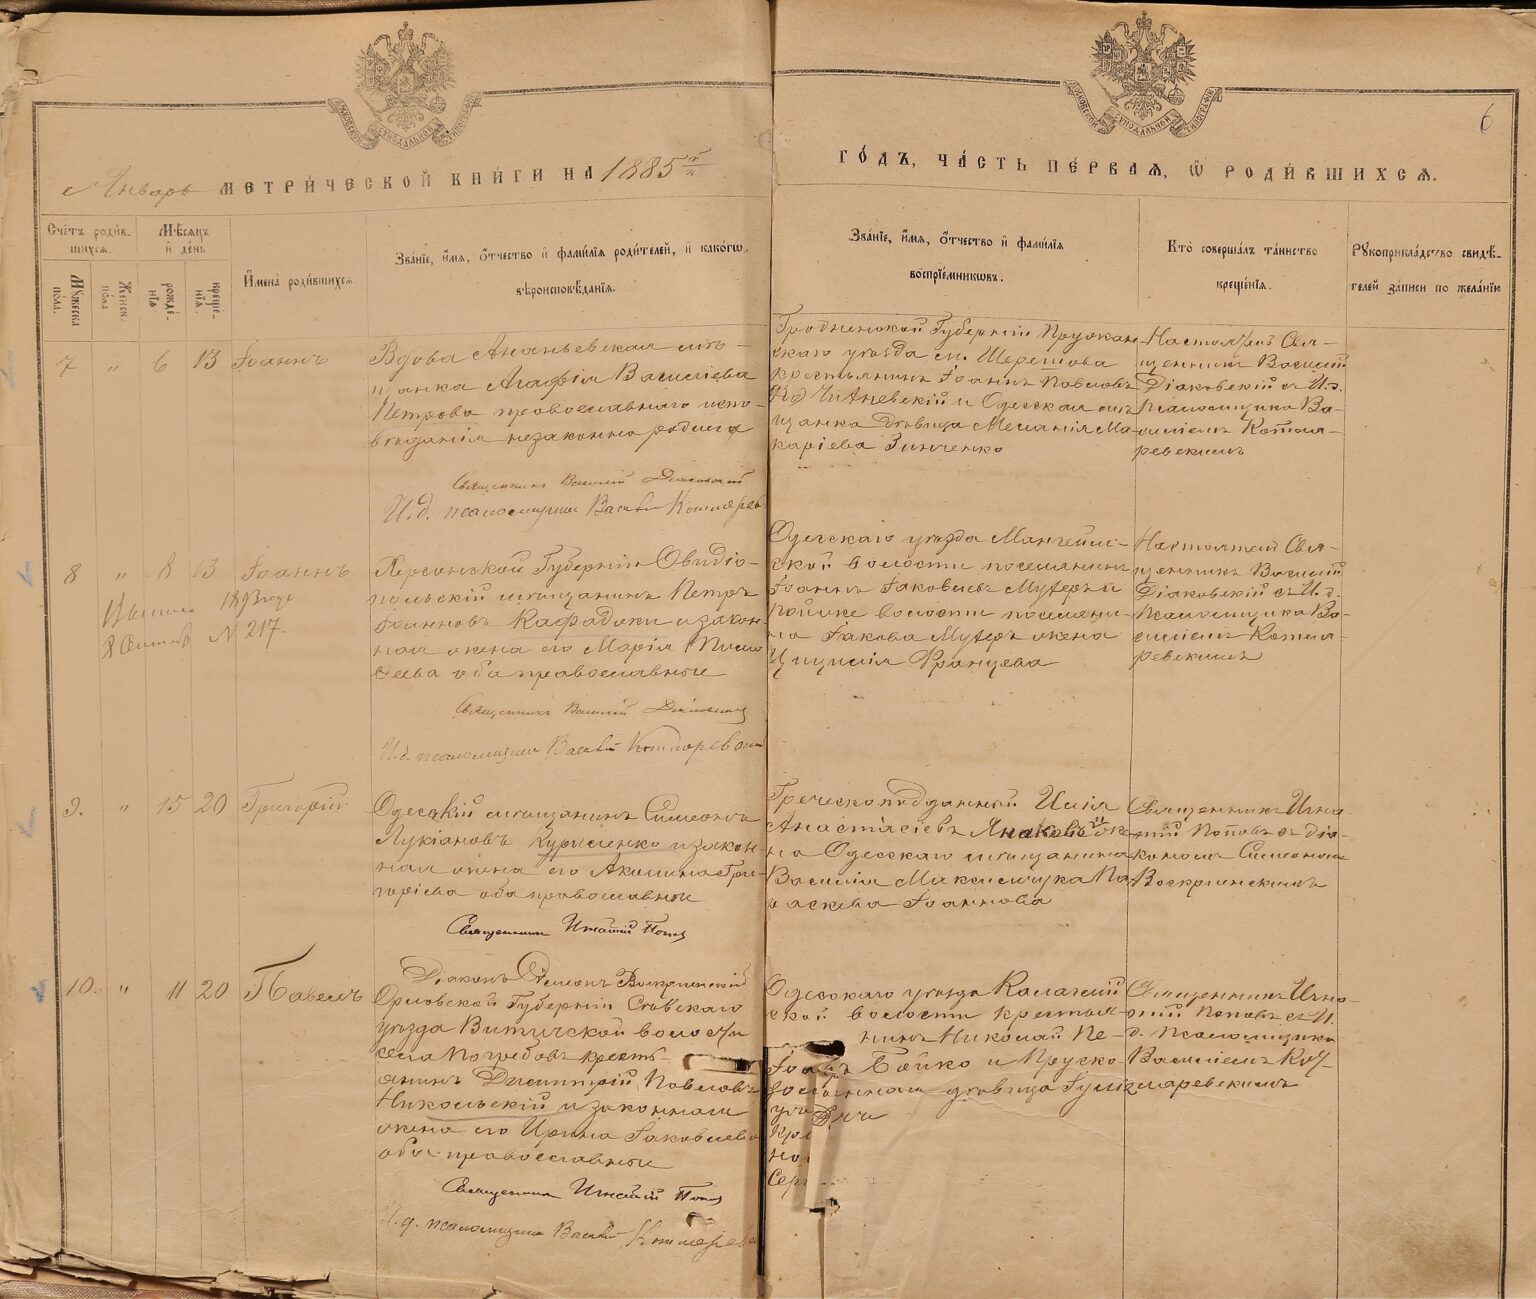 МОСКОВСКОЙ СѴНОДАЛЬНОЙ ТИПОГРАФІИ
МОСКОВСКОЙ СѴНОДАЛЬНОЙ ТИПОГРАФІИ
6
Январь МЕТРИ́ЧЕСКОЙ КНИ́ГИ НА 1885й
ГО́ДЪ, ЧА́СТЬ ПЕ́РВАЯ, Ѽ РОДИ́ВШИХСЯ.
Сче́тъ роди́в-
шихся.
Мꙋ́жеска по́ла.
Же́нск. по́ла
Мѣ́сяцъ
и́ де́нь
рожде́-
нія
креще́-
нія.
И҆мена̀ роди́вшихся.
Зва́нїе, и҆́мя, ѻ҆́тчество и҆ фами́лїя роди́телей, и҆ како́гѡ
вѣроисповѣ́данїя.
Зва́нїе, и҆́мя, ѻ҆́тчество и҆ фами́лїя
воспрїе́мниковъ.
Кто̀ соверша́лъ та́инство
креще́нїя.
Рꙋкоприкла́дство свидѣ́-
телей за́писи по жела́нїю
7 " 6 13 Іоаннъ
Вдова Ананьевская мѣ-
щанка Агафія Василіева
Петрова православнаго испо-
вѣданія незаконно родила
Священникъ Василій Діаковскій
И.д. псаломщика Василій Котляревс
Гродненской Губерніи Пружан-
скаго уѣзда м. Шерешова
крестьянинъ Іоаннъ Павловъ
и Одесская мѣ-
щанка дѣвица Меланія Ма-
каріева Зинченко
Настоящій Свя-
щенникъ Василій
Діаковскій съ И.д.
Псаломщика Ва-
силіемъ Котля-
ревскимъ
8 " 8 13 Іоаннъ
1893 года
8 Октяб № 217.
Херсонской Губерніи Овидіо-
польскій мѣщанинъ Петръ
Іоанновъ Кафадоки и закон-
ная жена его Марія
оба православные
Священникъ Василій Діаковскій
И.д. псаломщика Василій Котляревскій
Одесскаго уѣзда Мангейм-
ской волости поселянинъ
Іоаннъ Іаковлевъ Мутеръ и
волости поселяни-
на Іакова Мутеръ жена
Цицилія Францева
Настоящій Свя-
щенникъ Василій
Діаковскій съ И.д.
Псаломщика Ва-
силіемъ Котля-
ревскимъ
9. " 15 20 Григорій
Одесскій мѣщанинъ Симеонъ
Лукіановъ Куриленко и закон-
ная жена его Акилина Гри-
горіева оба православные
Священникъ Игнатій Попов
Греческоподданный Илія
Анастасіевъ Янаковъ и же-
на Одесскаго мѣщанина
Василія Максимчука Па-
раскева Іоаннова
Священникъ Игна-
тій Поповъ съ діа-
кономъ Симеономъ
Воскресенскимъ
10. " 11 20 Павелъ
Діаконъ Симеонъ Воскресенскій
Орловской Губерніи Сѣвскаго
уѣзда Витичской волости
села Погребовъ кресть-
янинъ Димитрій Павловъ
Никольскій и законная
жена его Ирина Іаковлева
оба православные
Священникъ Игнатій Попов
И.д. псаломщика Василій Котляревс
Одесскаго уѣзда
ской волости крестья-
нинъ Николай Пе-
Бойко и
дѣвица
Священникъ Игна-
тій Поповъ съ И.
д. Псаломщика
Василіемъ Кот-
ляревскимъ